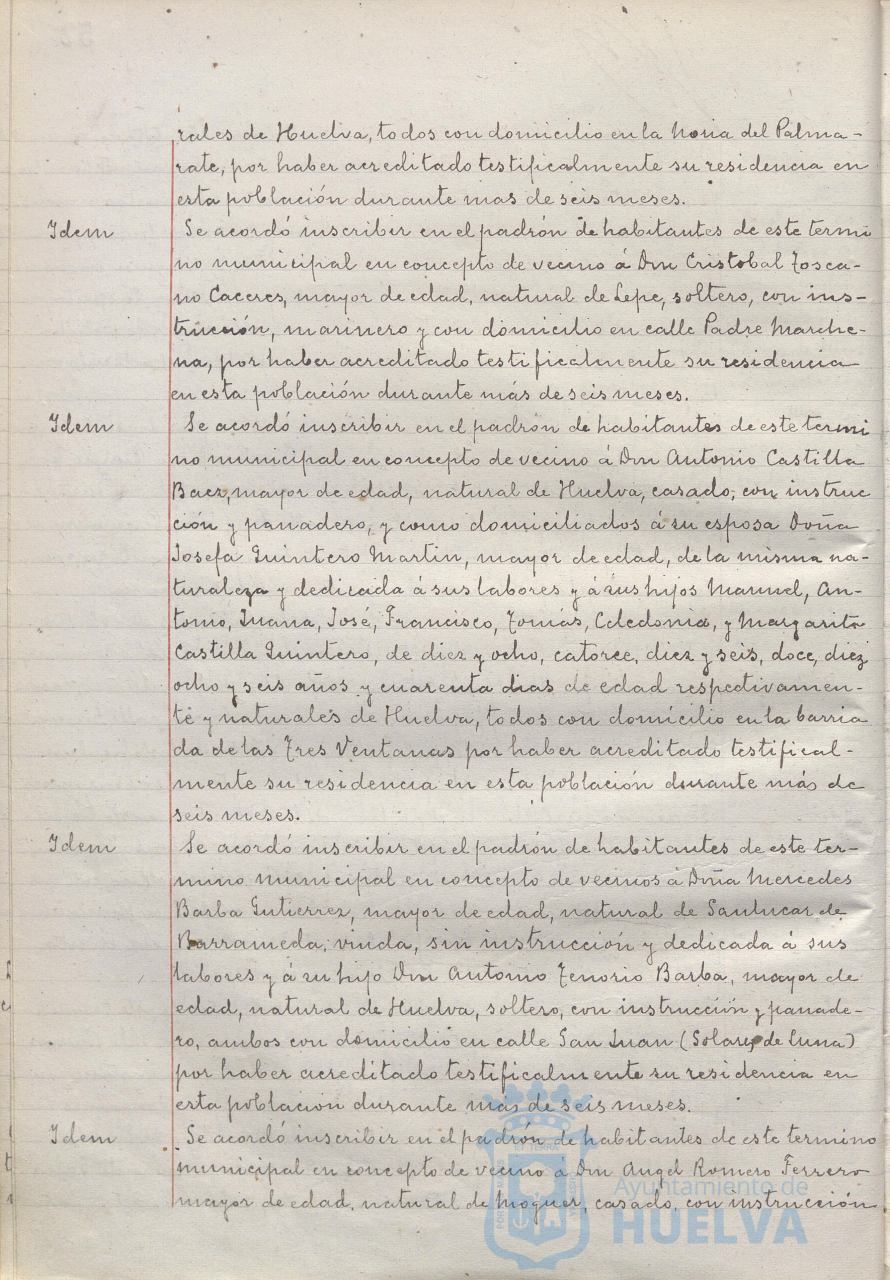 rales de Huelva, todos con domicilio en la Noria del Palma-
rate, por haber acreditado testificalmente su residencia en
esta población durante mas de seis meses.
Idem Se acordó inscribir en el padrón de habitantes de este termi
no municipal en concepto de vecino á Don Cristobal Tosca-
no Caceres, mayor de edad, natural de Lepe, soltero, con ins-
trucción, marinero y con domicilio en calle Padre Marche-
na, por haber acreditado testificalmente su residencia
en esta población durante más de seis meses.
Idem Se acordó inscribir en el padrón de habitantes de este termi
no municipal en concepto de vecino á Don Antonio Castilla
Baez, mayor de edad, natural de Huelva, casado, con instruc
ción y panadero, y como domiciliados á su esposa Doña
Josefa Quintero Martin, mayor de edad, de la misma na-
turaleza y dedicada á sus labores y á sus hijos Manuel, An-
tonio, Juana, José, Francisco, Tomás, Celedonia, y Margarita
Castilla Quintero, de diez y ocho, catorce, diez y seis, doce, diez
ocho y seis años y cuarenta dias de edad respectivamen-
te y naturales de Huelva, todos con domicilio en la barria
da de las Tres Ventanas por haber acreditado testifical-
mente su residencia en esta población durante más de
seis meses.
Idem Se acordó inscribir en el padrón de habitantes de este ter-
mino municipal en concepto de vecinos á Doña Mercedes
Barba Gutierrez, mayor de edad, natural de Sanlucar de
Barrameda, viuda, sin instrucción y dedicada á sus
labores y á su hijo Don Antonio Tenorio Barba, mayor de
edad, natural de Huelva, soltero, con instrucción y panade-
ro, ambos con domicilio en calle San Juan (Solares de Luna)
por haber acreditado testificalmente su residencia en
esta población durante más de seis meses.
Idem Se acordó inscribir en el padrón de habitantes de este termino
municipal en concepto de vecino á Don Angel Romero Ferrero
mayor de edad, natural de Moguer, casado, con instrucción
Ayuntamiento de
HUELVA